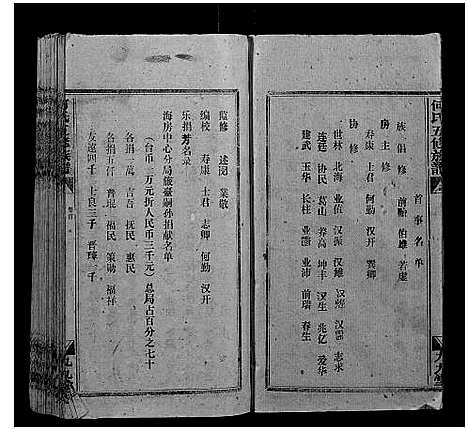 何氏五修族谱
首事名单
族倡修
前贻 伯雄 若虚
房主修
寿康 士君 何勤 汉开 志卿
协修
世林 北海 业值 汉振 汉雄 汉 志求
连廷 协民 葛山 养高 坤丰 汉生 兆亿 爱华
建武 玉华 长柱 业 业沛 前瑞 春生
监修 述闵 业敬
编校 寿康 士君 志卿 何勤 汉开
乐捐芳名录
海房中心分局旅台嗣孙捐献名单
（台币二万元折人民币三千元）总局占百分之七十
各捐一万 吉吾 抚民 惠民
各捐五仟 普琨 福民 策勋 福祥
友遠四千 士良三千 晋璋一千